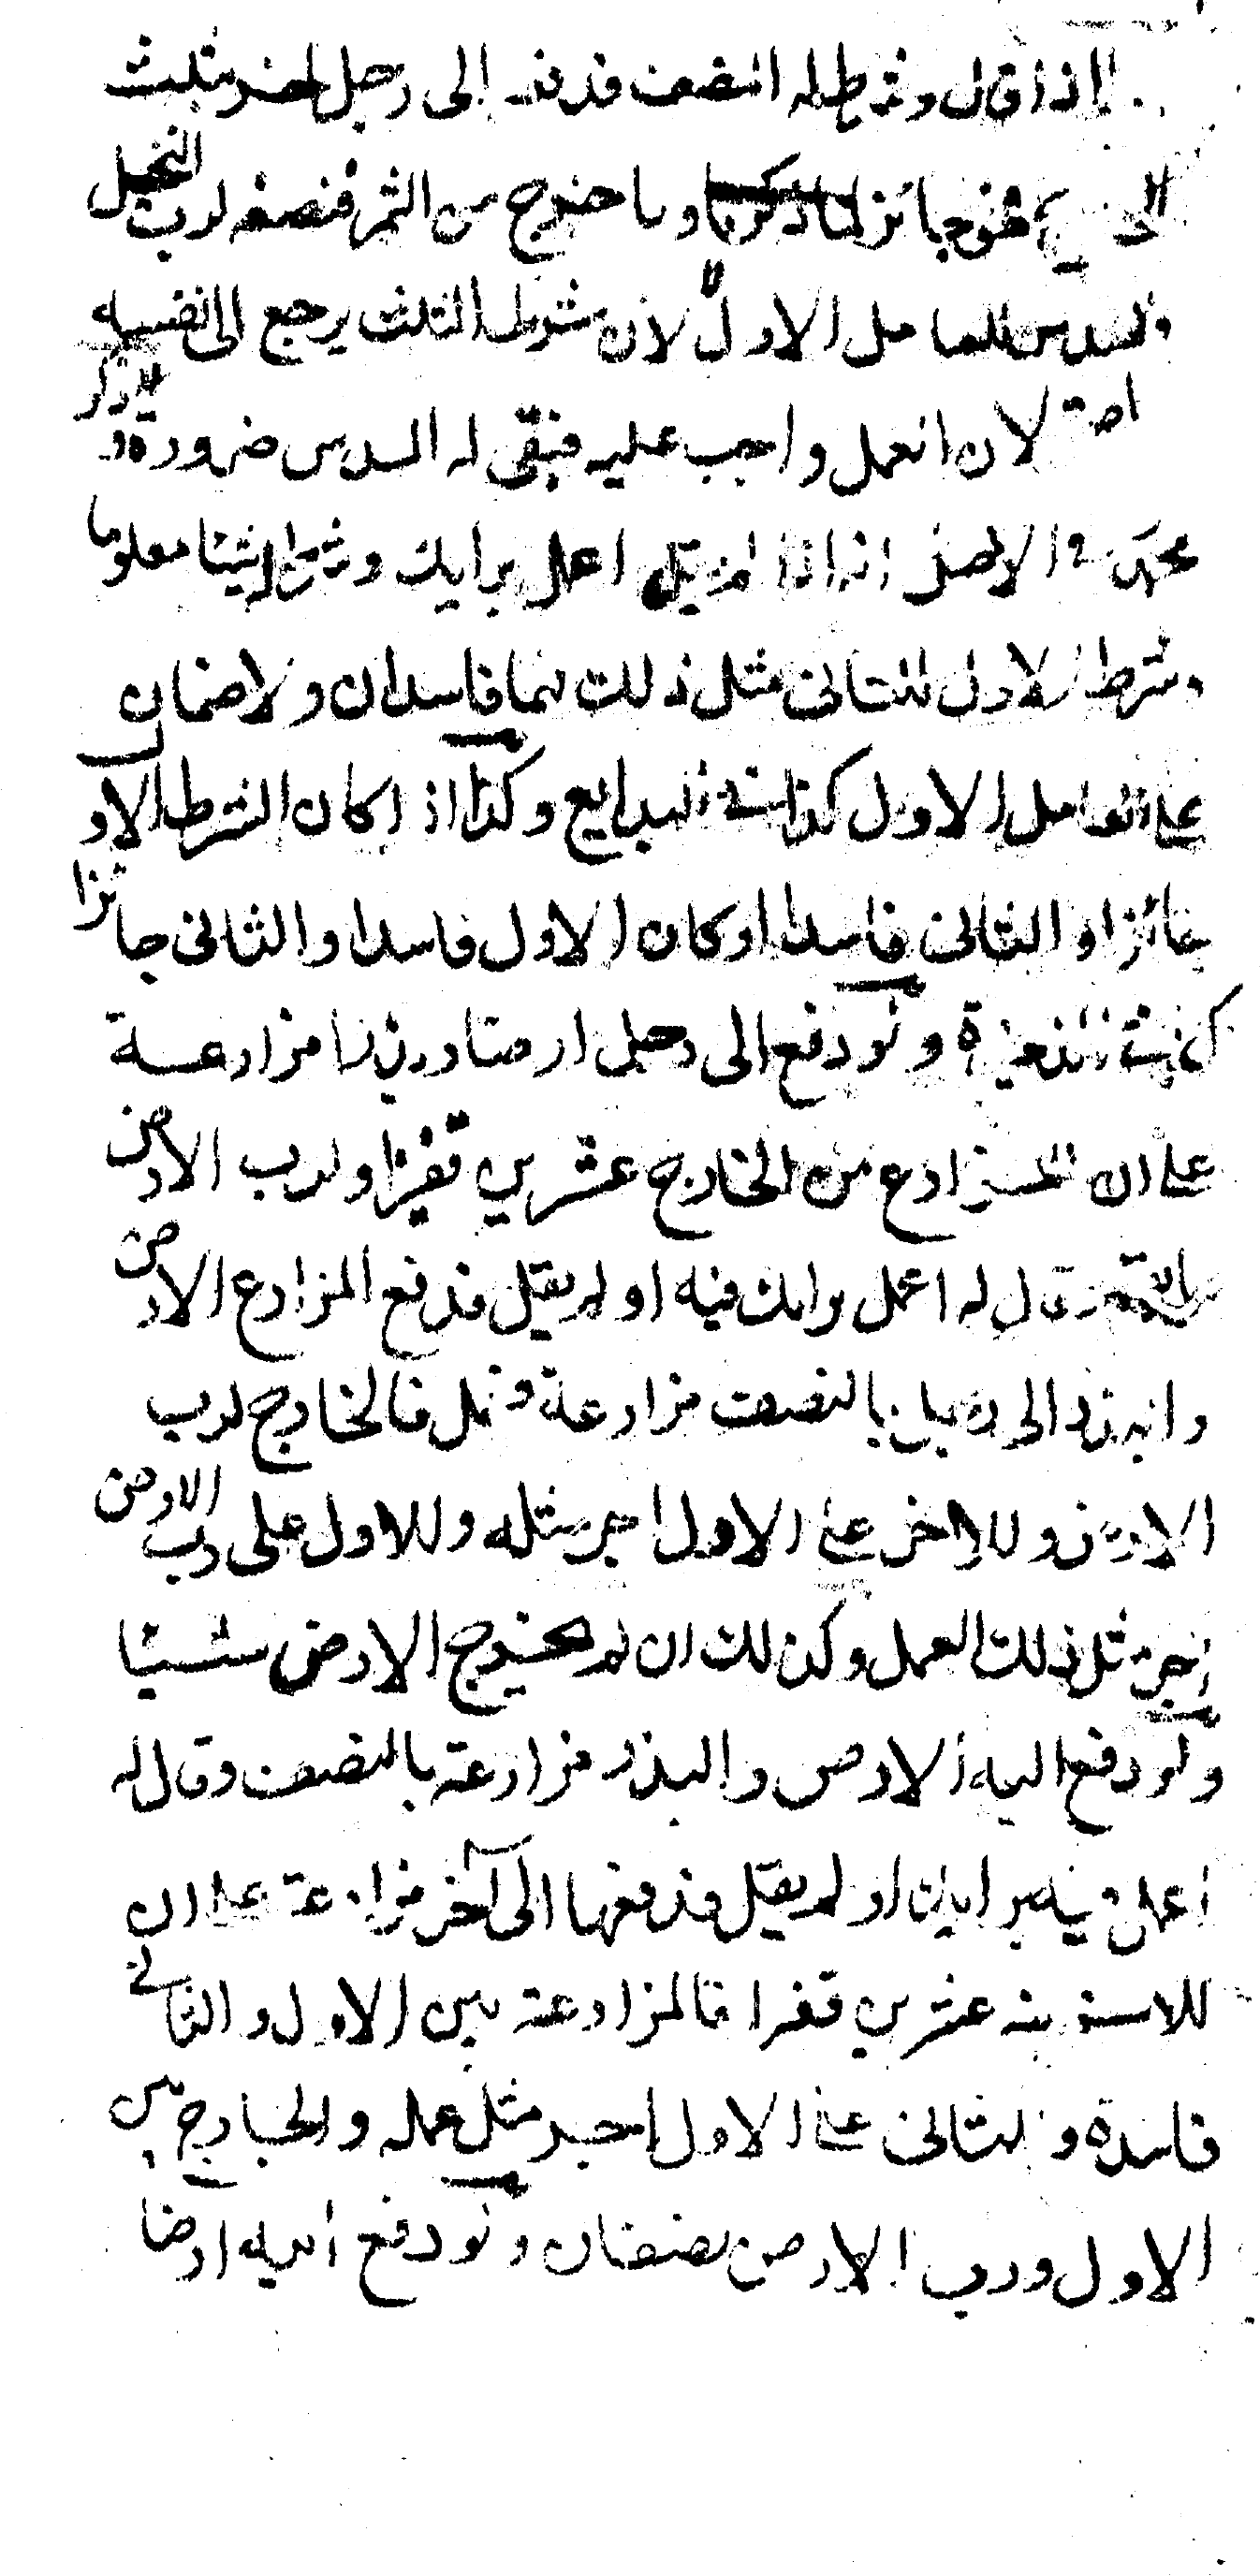 اذا قال وشرط له النصف فدفعه الى رجل اخر بثلث
الخارج فهو جائز لما ذكرنا وما خرج من الثمر فنصفه لرب النخيل
والسدس للعامل الاول لان شرط الثلث يرجع الى نفسه
لان العمل واجب عليه فبقى له السدس ضرورة وذكر
محمد في الاصل انه اذا لم يقل اعمل برايك وشرط له شيئا معلوما
وشرط الاول للثاني مثل ذلك فهما فاسدان ولا ضمان
على العامل الاول كذا في البدايع وكذا اذا كان الشرط الاول
جائزا والثاني فاسدا او كان الاول فاسدا والثاني جائزا
كذا في الذخيرة ولو دفع الى رجل ارضا وبذرا مزارعة
على ان للمزارع من الخارج عشرين قفيزا ولرب الارض
ما بقي وقال له اعمل برايك فيه او لم يقل فدفع المزارع الارض
والبذر الى رجل بالنصف مزارعة فعمل فالخارج لرب
الارض وللاخر على الاول اجر مثله وللاول على رب الارض
اجر مثل ذلك العمل وكذلك ان لم تخرج الارض شيئا
ولو دفع اليه الارض والبذر مزارعة بالنصف وقال له
اعمل فيه برايك او لم يقل فدفعها الى آخر مزارعة على ان
للاخر منه عشرين قفيزا فالمزارعة بين الاول والثاني
فاسدة وللثاني على الاول اجر مثل عمله والخارج بين
الاول ورب الارض نصفان ولو دفع اليه ارضا